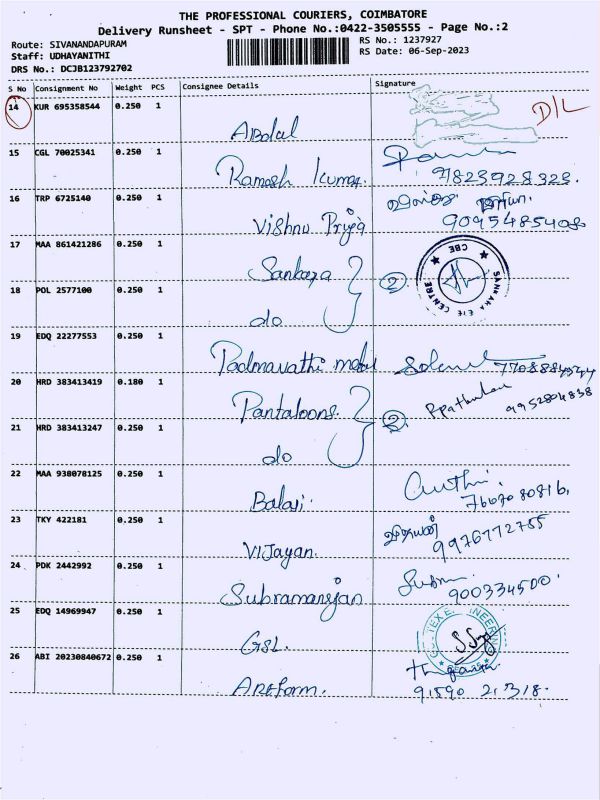 THE PROFESSIONAL COURIERS, COIMBATORE
Delivery Runsheet - SPT - Phone No.:0422-3505555 - Page No.:2
Route: SIVANANDAPURAM
RS No.: 1237927
Staff: UDHAYANITHI
RS Date: 06-Sep-2023
DRS No.: DCJB123792702
S No Consignment No Weight PCS Consignee Details Signature
14 KUR 695358544 0.250 1
D/L
Abdul
15 CGL 70025341 0.250 1
Ramesh Kumar. 9823928328.
16 TRP 6725140 0.250 1
Vishnu Priya 9095485408
17 MAA 861421286 0.250 1
Sankara 2 CBE SANKARA EYE CENTRE
18 POL 2577100 0.250 1
do
19 EDQ 22277553 0.250 1
Padmavathi
20 HRD 383413419 0.180 1
Pantaloons. 2 9952804838
21 HRD 383413247 0.250 1
do
22 MAA 938078125 0.250 1
Balaji.
23 TKY 422181 0.250 1
விஜயன் 9976772755
Vijayan.
24 PDK 2442992 0.250 1
Subramaniyan 900334500.
25 EDQ 14969947 0.250 1
GSL.
26 ABI 20230840672 0.250 1
91590 21318.